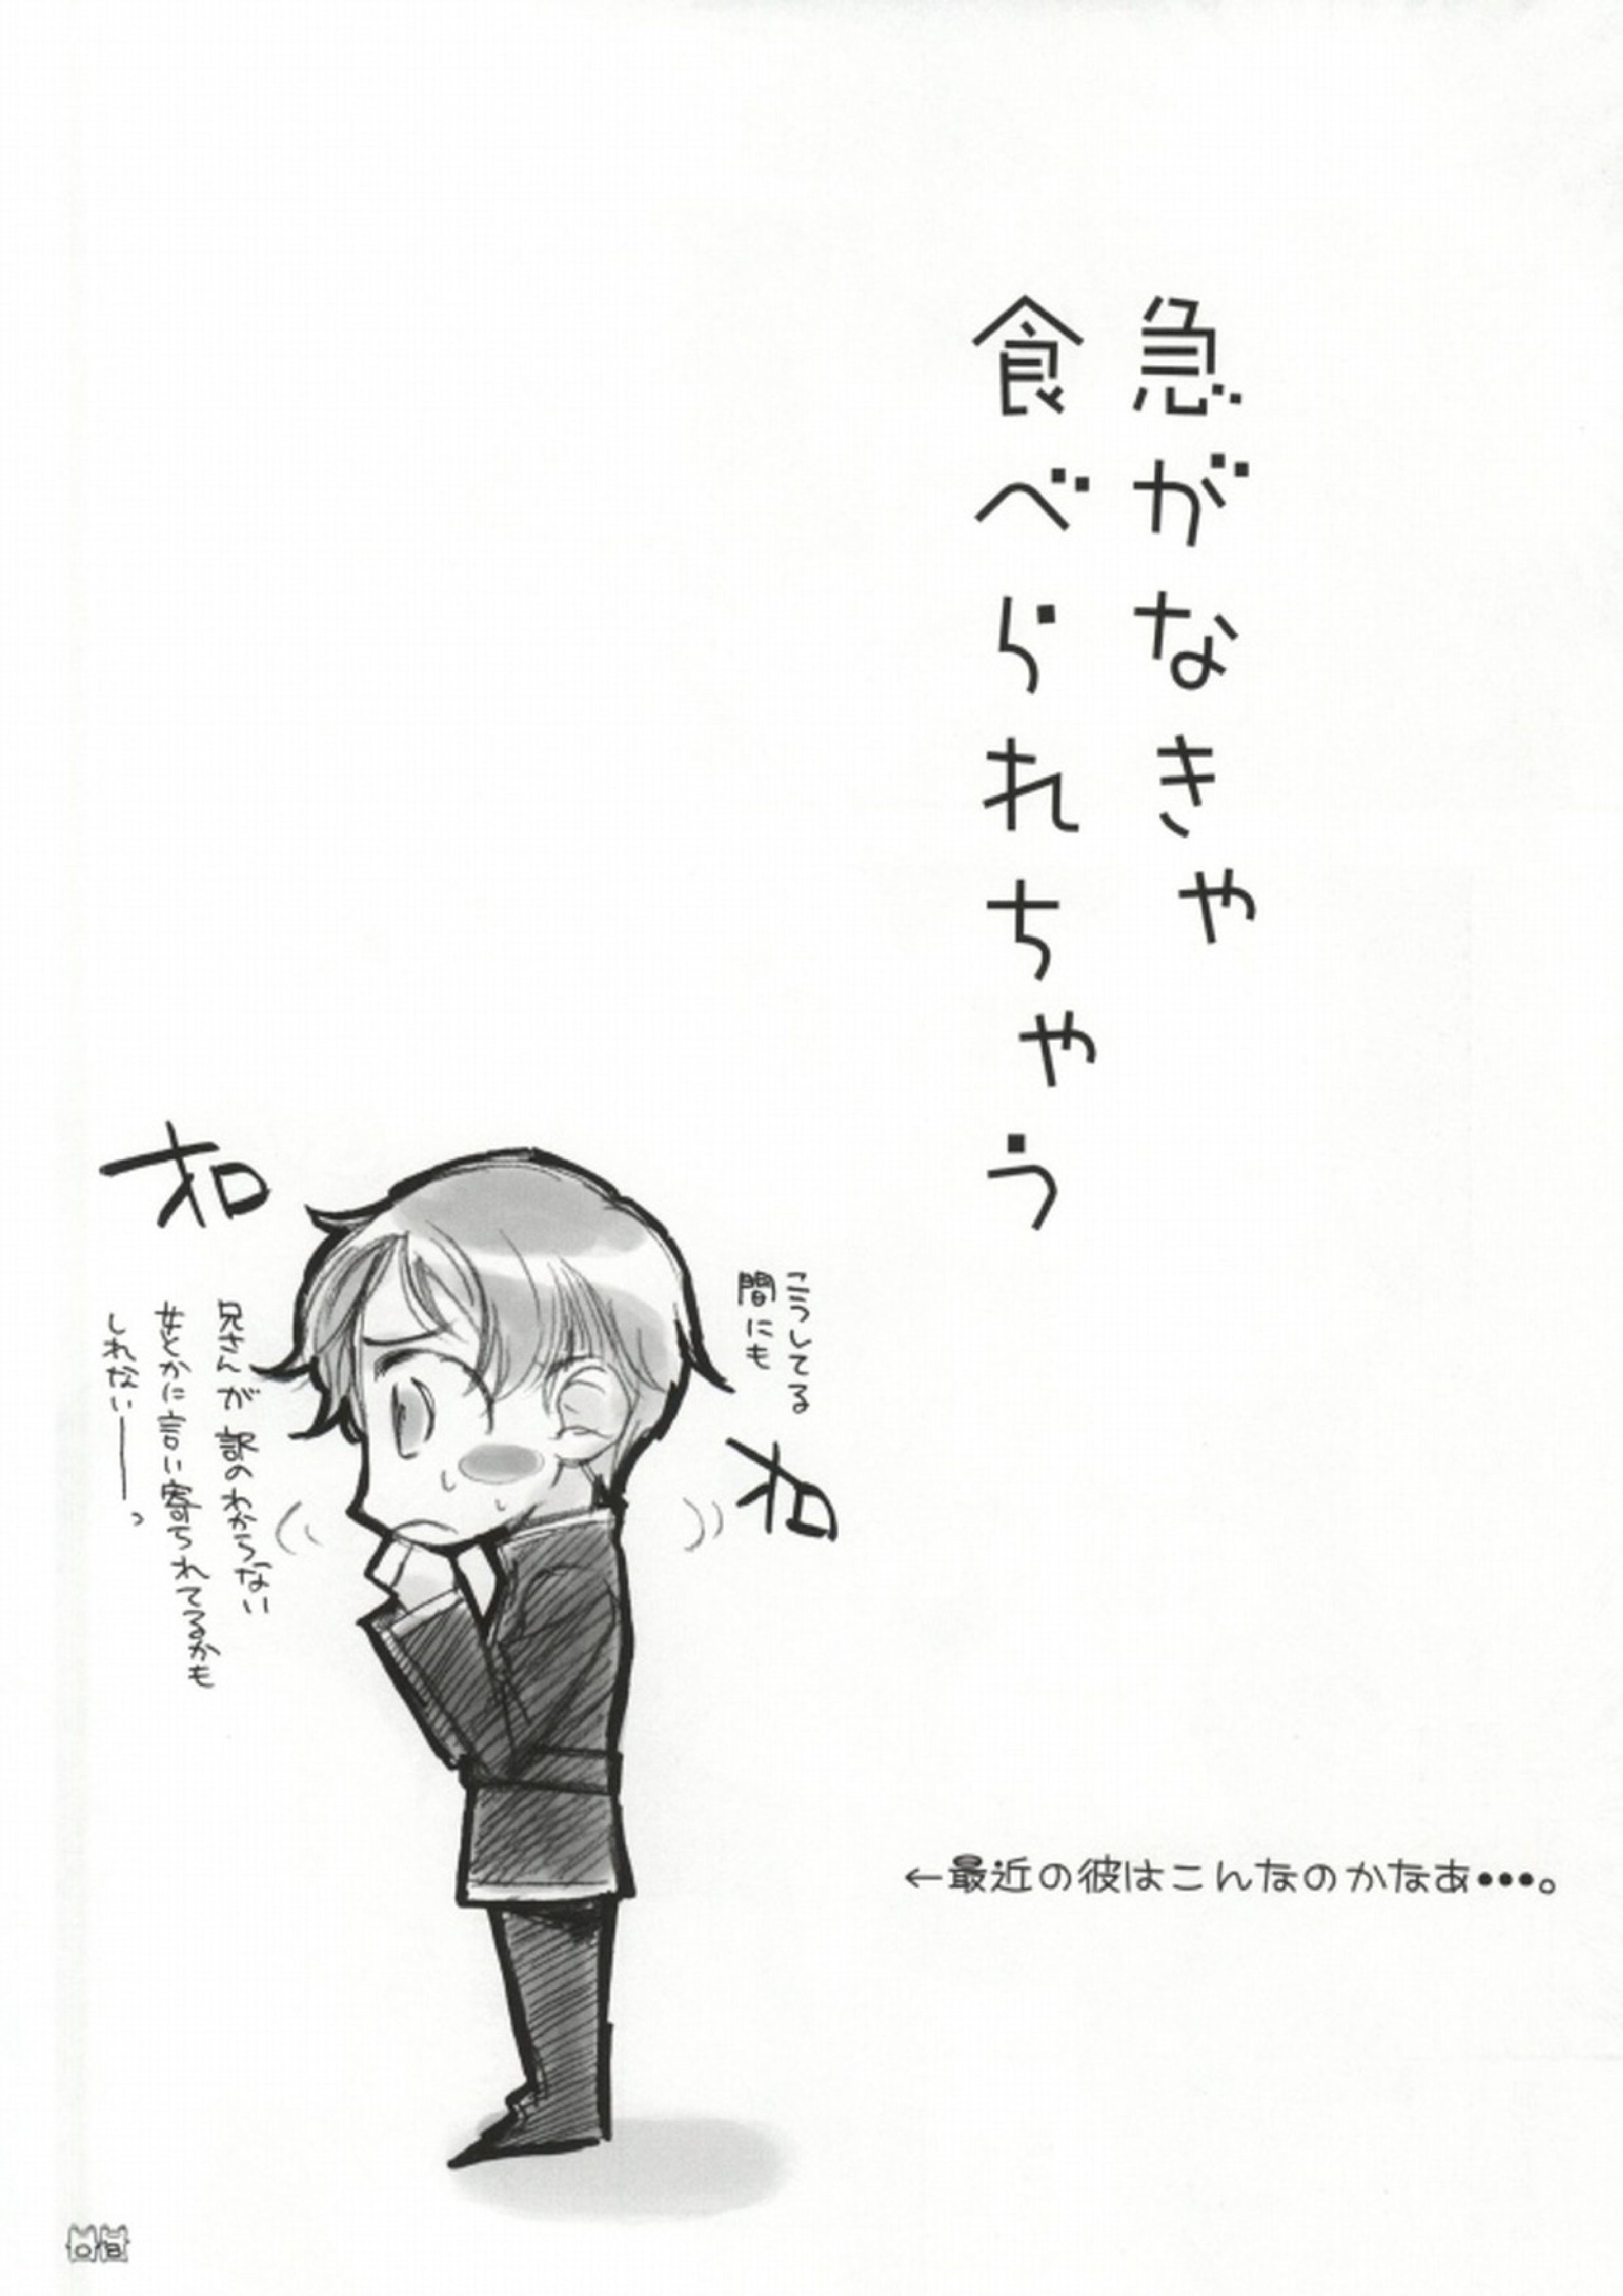 急がなきゃ
食べられちゃう
こうしてる
間にも
オロ
オロ
兄さんが訳のわからない
女とかに言い寄られてるかも
しれない――っ
←最近の彼はこんなのかなあ・・・。